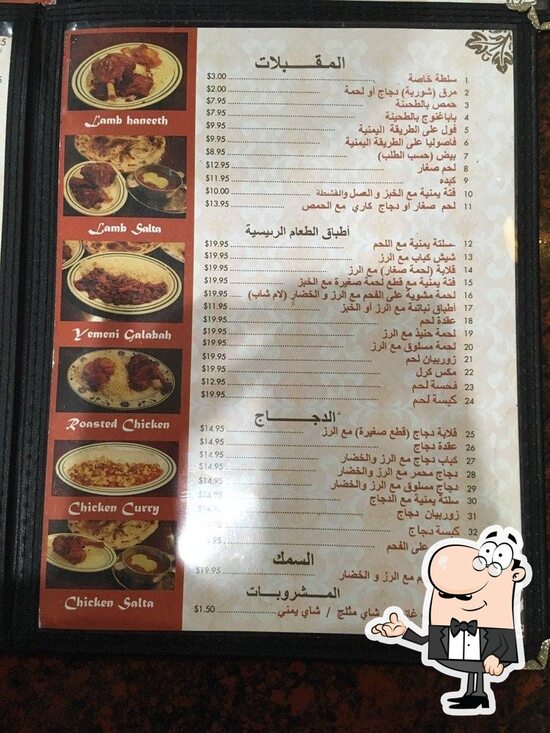 Lamb haneeth
Lamb Salta
Yemeni Galabah
Roasted Chicken
Chicken Curry
Chicken Salta
المقبلات
1 سلطة خاصة $3.00
2 مرق (شوربة) دجاج أو لحمة $2.00
3 حمص بالطحينة $7.95
4 باباغنوج بالطحينة $7.95
5 فول على الطريقة اليمنية $9.95
6 فاصوليا على الطريقة اليمنية $9.95
7 بيض (حسب الطلب) $8.95
8 لحم صغار $12.95
9 كبده $11.95
10 فتة يمنية مع الخبز و العسل والقشطة $10.00
11 لحم صغار او دجاج كاري مع الحمص $13.95
أطباق الطعام الرئيسية
12 سلتة يمنية مع اللحم $19.95
13 شيش كباب مع الرز $19.95
14 قلابة (لحمة صغار) مع الرز $19.95
15 فتة يمنية مع قطع لحمة صغيرة مع الخبز $19.95
16 لحمة مشوية على الفحم مع الرز و الخضار (لام شاب) $19.95
17 أطباق نباتية مع الرز أو الخبز $11.95
18 عقدة لحم $19.95
19 لحمة حنيذ مع الرز $19.95
20 لحمة مسلوق مع الرز $19.95
21 زوربيان لحم $19.95
22 مكس كرل $19.95
23 فحسة لحم $12.95
24 كبسة لحم $19.95
الدجاج
25 قلابة دجاج (قطع صغيرة) مع الرز $14.95
26 عقدة دجاج $14.95
27 كباب دجاج مع الرز والخضار $14.95
28 دجاج محمر مع الرز والخضار $14.95
29 دجاج مسلوق مع الرز والخضار $14.95
30 سلتة يمنية مع الدجاج $14.95
31 زوربيان دجاج $14.95
32 كبسة دجاج $14.95
على الفحم
السمك
مع الرز و الخضار $19.95
المشروبات
شاي مثلج / شاي يمني $1.50